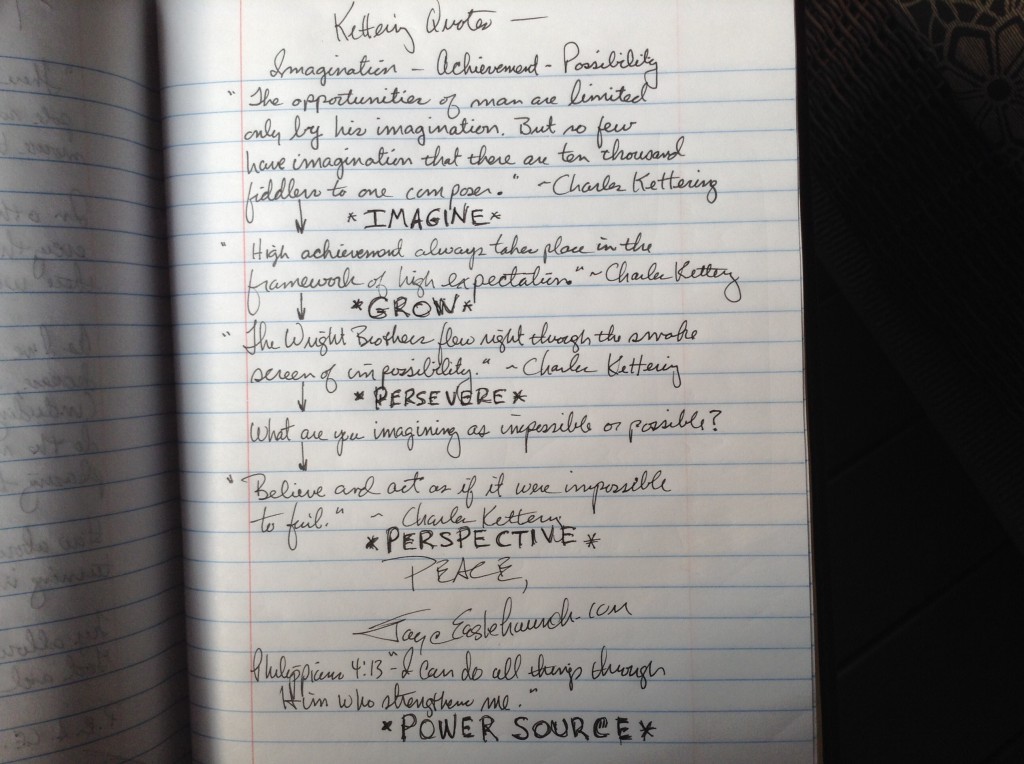 Kettering Quotes —
Imagination - Achievement - Possibility
"The opportunities of man are limited
only by his imagination. But so few
have imagination that there are ten thousand
fiddlers to one composer." ~Charles Kettering
*IMAGINE*
"High achievement always takes place in the
framework of high expectation." ~Charles Kettering
*GROW*
"The Wright Brothers flew right through the smoke
screen of impossibility." ~Charles Kettering
*PERSEVERE*
What are you imagining as impossible or possible?
"Believe and act as if it were impossible
to fail." ~ Charles Kettering
*PERSPECTIVE*
PEACE,
Philippians 4:13 "I can do all things through
Him who strengthens me."
*POWER SOURCE*